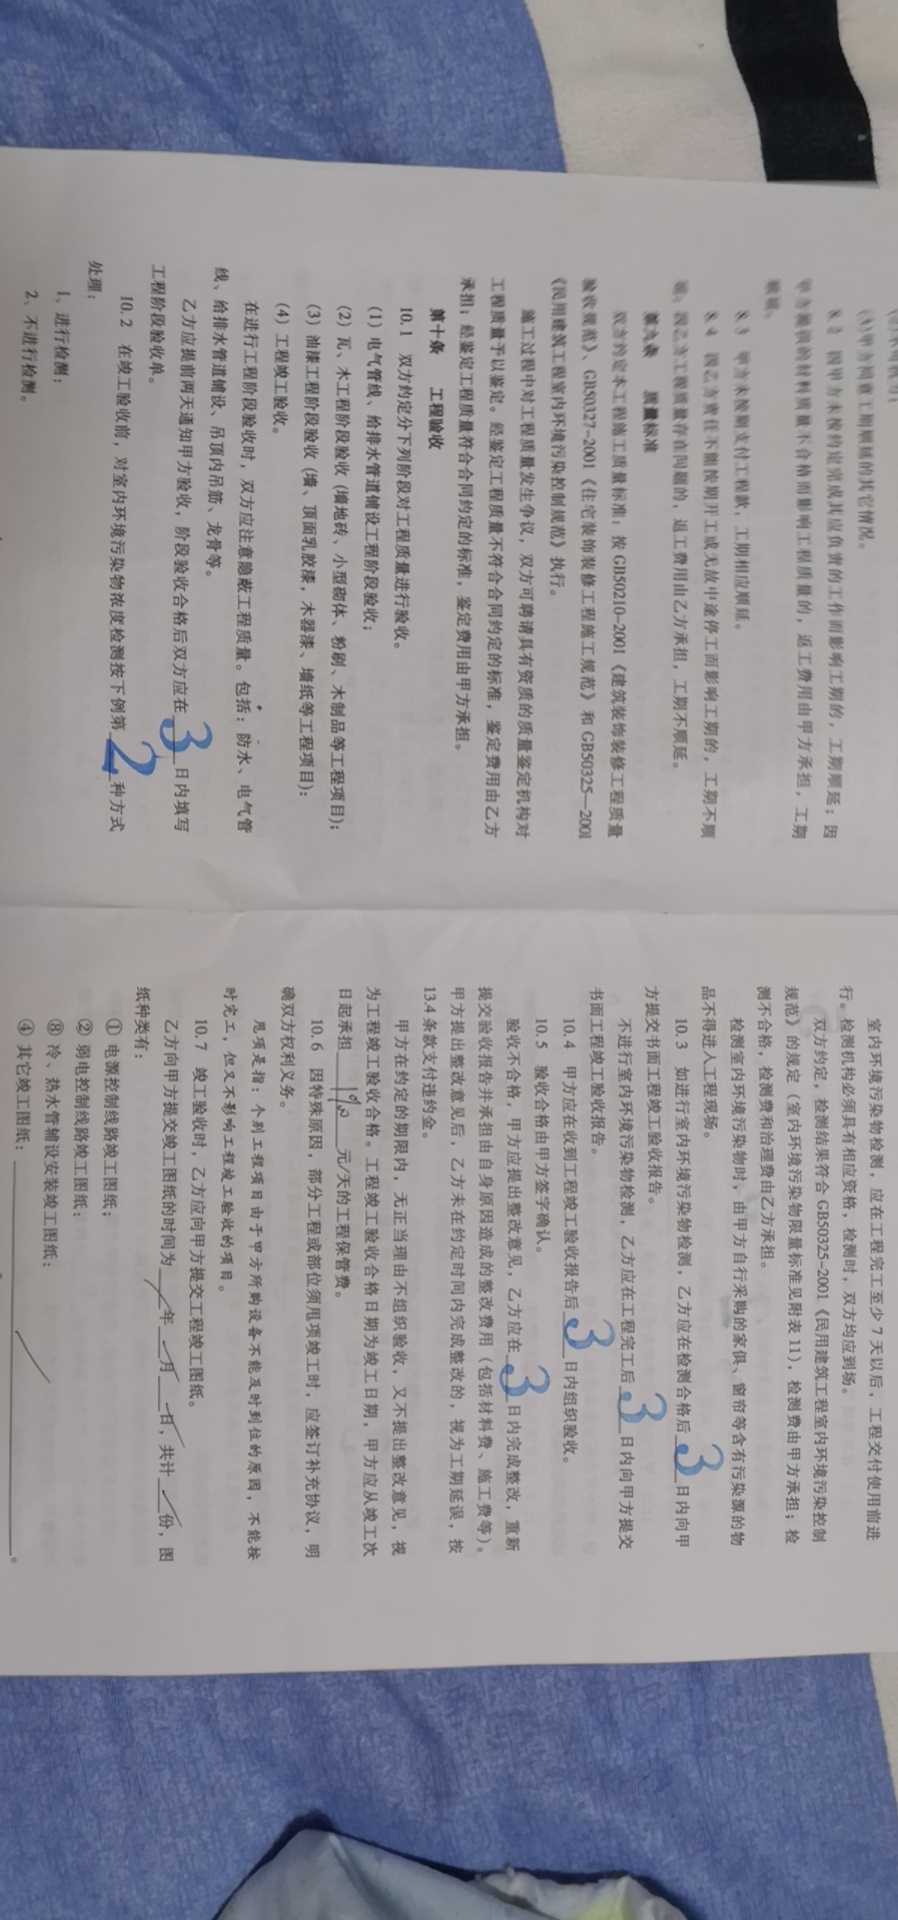 (4)甲方同意工期顺延的其它情况。
8.2 因甲方未按约定完成其应负责的工作而影响工期的，工期顺延；因
甲方提供的材料质量不合格而影响工程质量的，返工费用由甲方承担，工期
顺延。
8.3 甲方未按期支付工程款，工期相应顺延。
8.4 因乙方责任不能按期开工或无故中途停工而影响工期的，工期不顺
延；因乙方工程质量存在问题的，返工费用由乙方承担，工期不顺延。
第九条 质量标准
双方约定本工程施工质量标准：按GB50210-2001《建筑装饰装修工程质量
验收规范》、GB50327-2001《住宅装饰装修工程施工规范》和GB50325—2001
《民用建筑工程室内环境污染控制规范》执行。
施工过程中对工程质量发生争议，双方可聘请具有资质的质量鉴定机构对
工程质量予以鉴定。经鉴定工程质量不符合合同约定的标准，鉴定费用由乙方
承担；经鉴定工程质量符合合同约定的标准，鉴定费用由甲方承担。
第十条 工程验收
10.1 双方约定分下列阶段对工程质量进行验收。
(1)电气管线、给排水管道铺设工程阶段验收；
(2)瓦、木工程阶段验收(墙地砖、小型砌体、粉刷、木制品等工程项目)；
(3)油漆工程阶段验收(墙、顶面乳胶漆，木器漆、墙纸等工程项目)；
(4)工程竣工验收。
在进行工程阶段验收时，双方应注意隐蔽工程质量。包括：防水、电气管
线、给排水管道铺设、吊顶内吊筋、龙骨等。
乙方应提前两天通知甲方验收，阶段验收合格后双方应在3日内填写
工程阶段验收单。
10.2 在竣工验收前，对室内环境污染物浓度检测按下例第2种方式
处理：
1、进行检测；
2、不进行检测。
室内环境污染物检测，应在工程完工至少7天以后，工程交付使用前进
行。检测机构必须具有相应资格，检测时，双方均应到场。
双方约定，检测结果符合GB50325-2001《民用建筑工程室内环境污染控制
规范》的规定（室内环境污染物限量标准见附表11），检测费由甲方承担；检
测不合格，检测费和治理费由乙方承担。
检测室内环境污染物时，由甲方自行采购的家俱、窗帘等含有污染源的物
品不得进入工程现场。
10.3 如进行室内环境污染物检测，乙方应在检测合格后3日内向甲
方提交书面工程竣工验收报告。
不进行室内环境污染物检测，乙方应在工程完工后3日内向甲方提交
书面工程竣工验收报告。
10.4 甲方应在收到工程竣工验收报告后3日内组织验收。
10.5 验收合格由甲方签字确认。
验收不合格，甲方应提出整改意见，乙方应在3日内完成整改，重新
提交验收报告并承担由自身原因造成的整改费用（包括材料费、施工费等）。
甲方提出整改意见后，乙方未在约定时间内完成整改的，视为工期延误，按
13.4条款支付违约金。
甲方在约定的期限内，无正当理由不组织验收，又不提出整改意见，视
为工程竣工验收合格。工程竣工验收合格日期为竣工日期，甲方应从竣工次
日起承担1%元/天的工程保管费。
10.6 因特殊原因，部分工程或部位须甩项竣工时，应签订补充协议，明
确双方权利义务。
甩项是指：个别工程项目由于甲方所购设备不能及时到位的原因，不能按
时完工，但又不影响工程竣工验收的项目。
10.7 竣工验收时，乙方应向甲方提交工程竣工图纸。
乙方向甲方提交竣工图纸的时间为 年 月 日，共计 份，图
纸种类有：
① 电源控制线路竣工图纸；
② 弱电控制线路竣工图纸；
⑧ 冷、热水管铺设安装竣工图纸；
④ 其它竣工图纸： 。